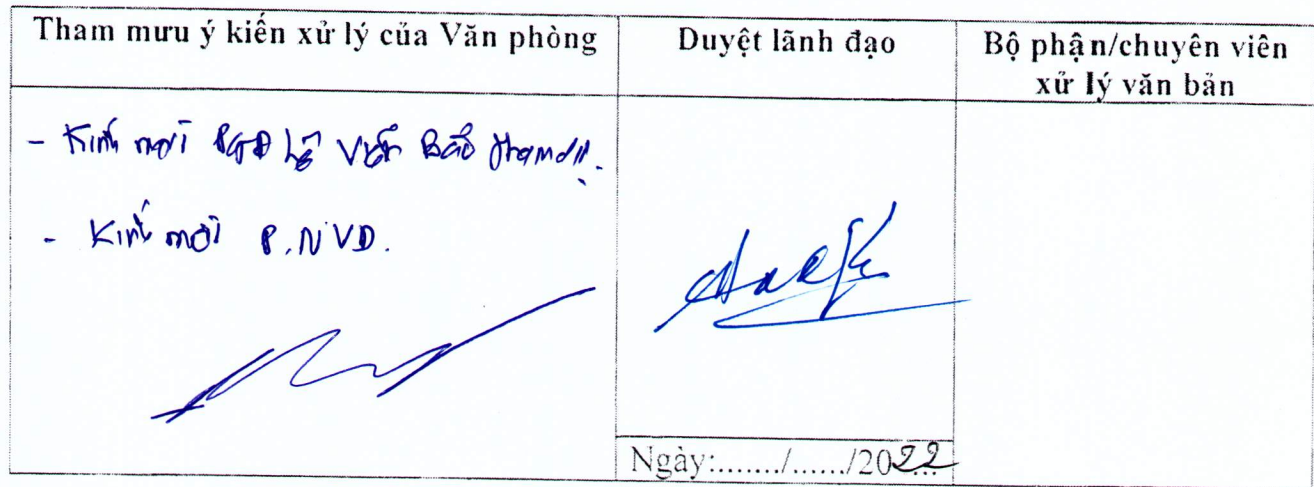 Tham mưu ý kiến xử lý của Văn phòng
Duyệt lãnh đạo
Bộ phận/chuyên viên
xử lý văn bản
- Kính mời PGĐ Lê Bảo
- Kính mời P.NVD.
Ngày:......./....../2022